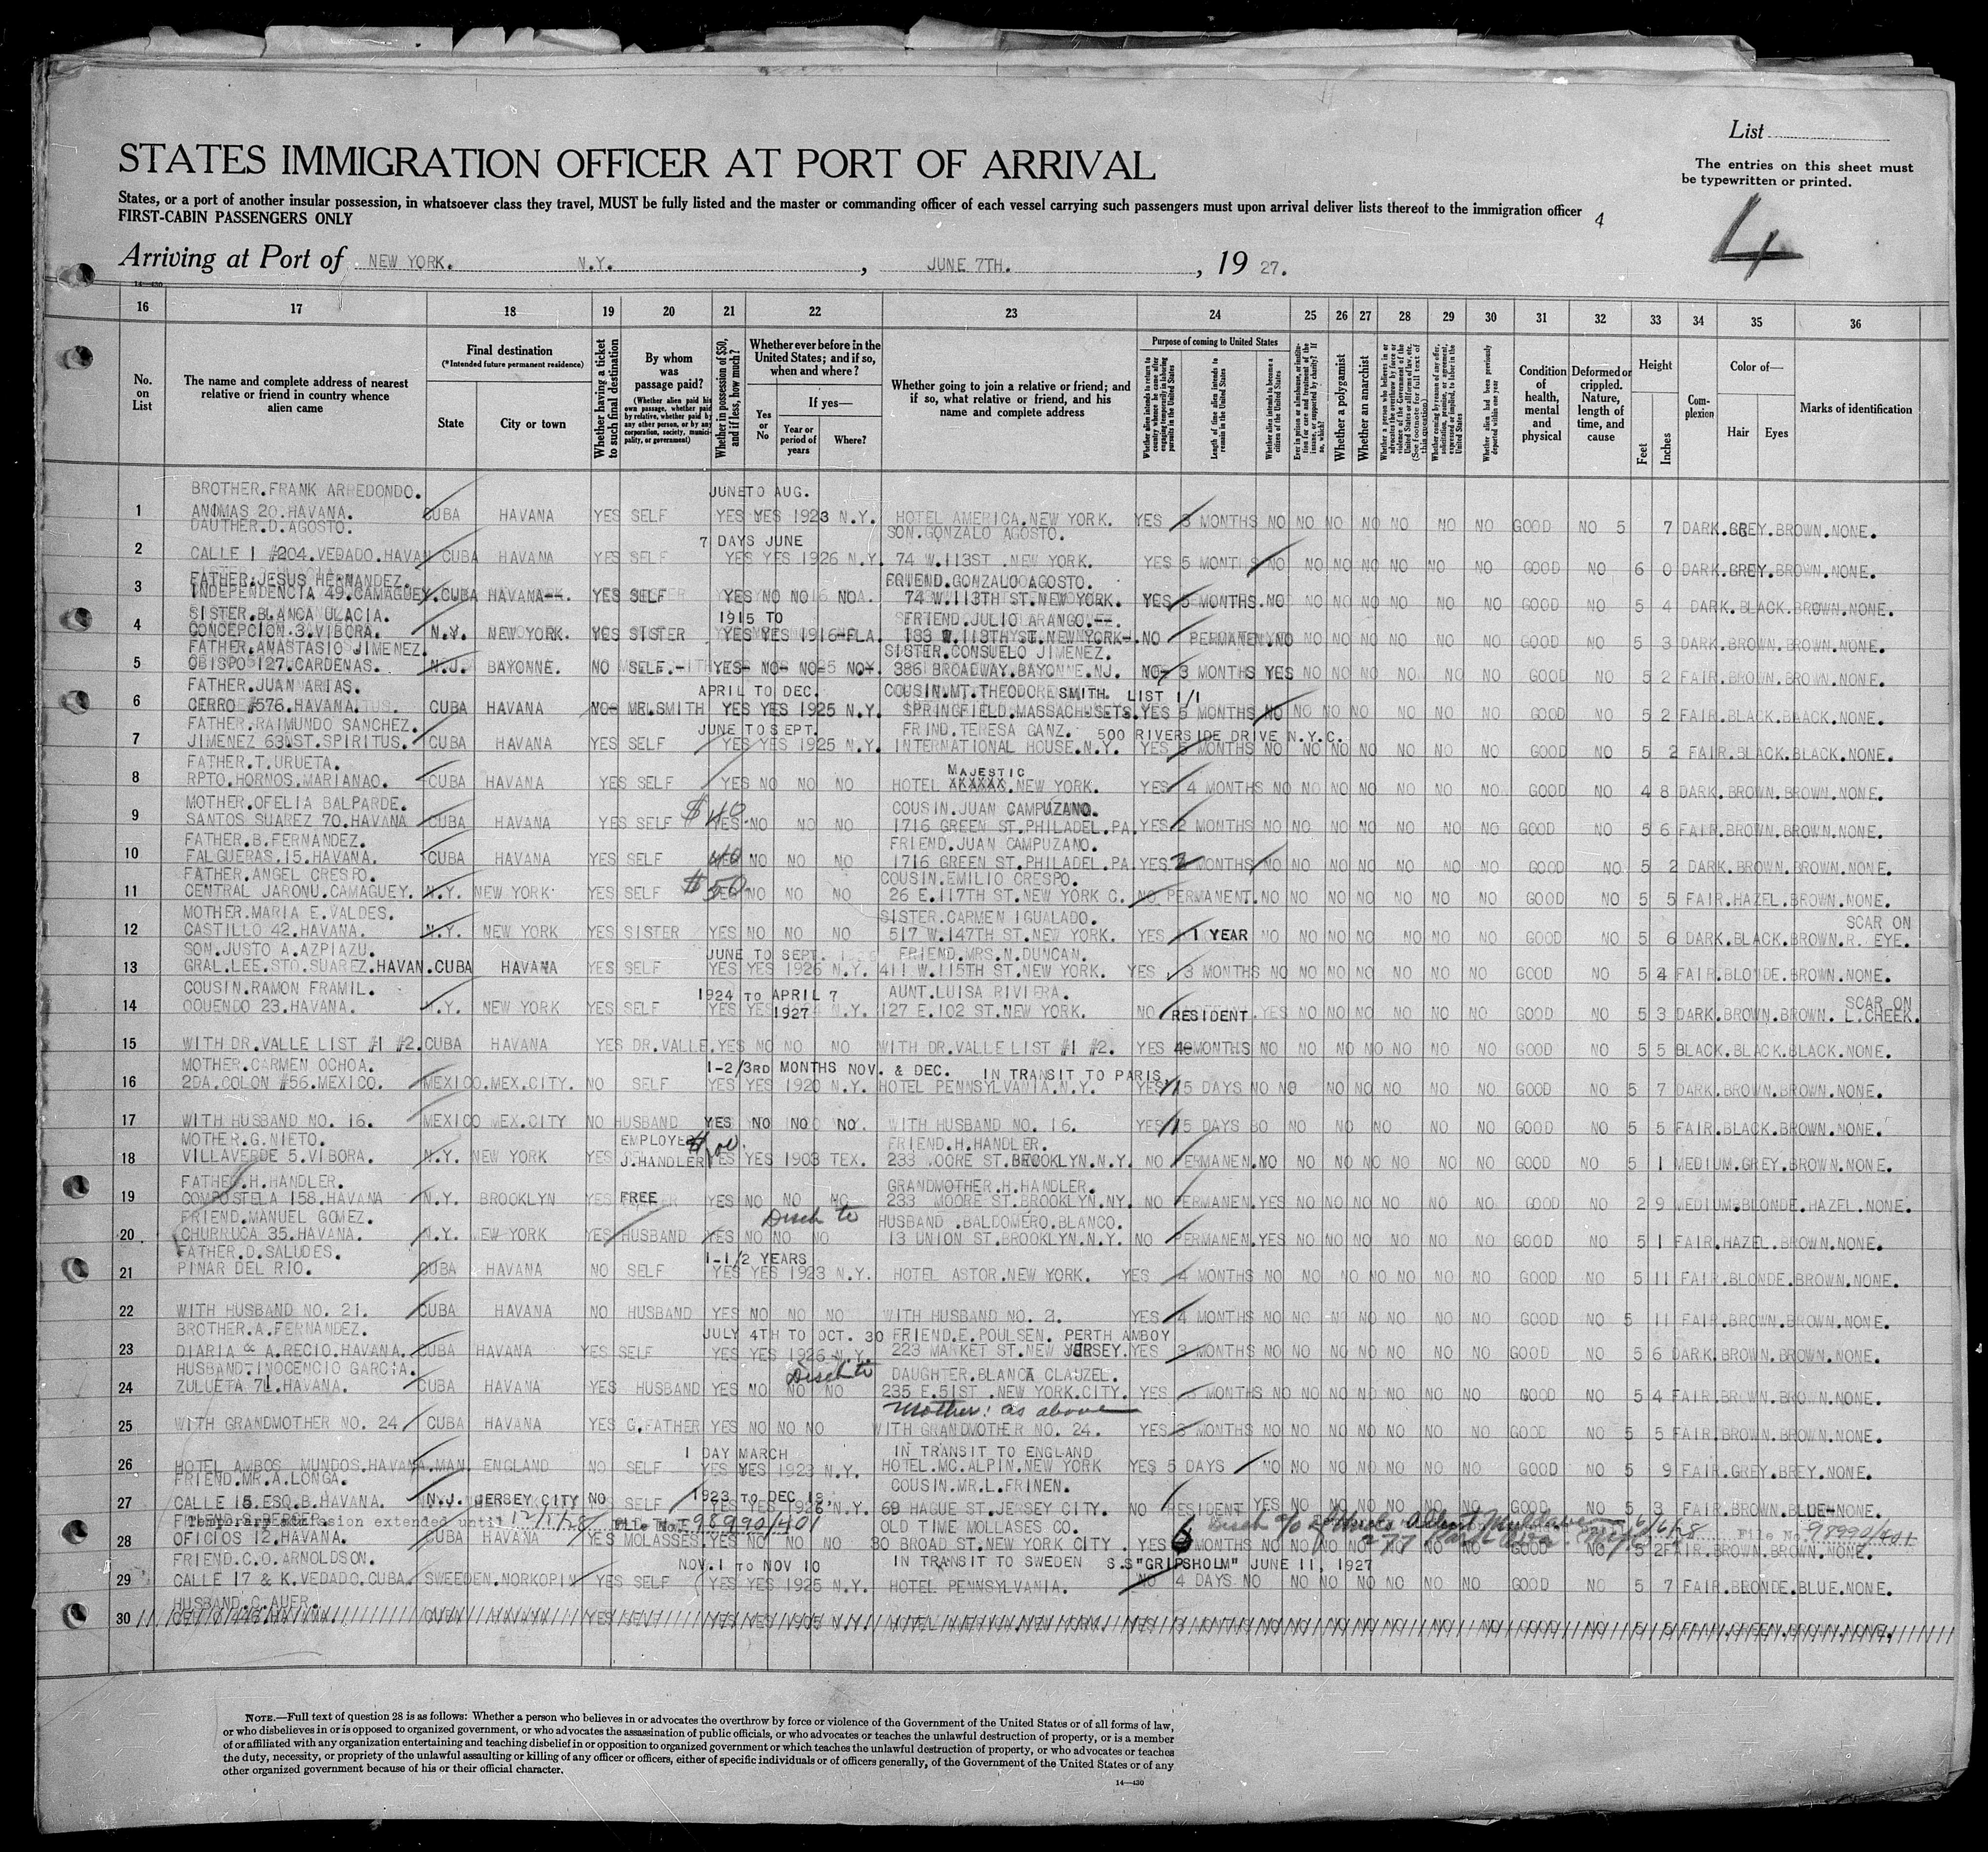 List
STATES IMMIGRATION OFFICER AT PORT OF ARRIVAL
The entries on this sheet must
be typewritten or printed.
States, or a port of another insular possession, in whatsoever class they travel, MUST be fully listed and the master or commanding officer of each vessel carrying such passengers must upon arrival deliver lists thereof to the immigration officer
FIRST-CABIN PASSENGERS ONLY
4
4
Arriving at Port of NEW YORK. N.Y. , JUNE 7TH. , 19 27.
14—430
16 17 18 19 20 21 22 23 24 25 26 27 28 29 30 31 32 33 34 35 36
No. on List
The name and complete address of nearest relative or friend in country whence alien came
Final destination
(*Intended future permanent residence)
State
City or town
Whether having a ticket to such final destination
By whom was passage paid?
(Whether alien paid his own passage, whether paid by relative, whether paid by any other person, or by any corporation, society, municipality, or government)
Whether in possession of $50, and if less, how much?
Whether ever before in the United States; and if so, when and where?
Yes or No
If yes—
Year or period of years
Where?
Whether going to join a relative or friend; and if so, what relative or friend, and his name and complete address
Purpose of coming to United States
Whether alien intends to return to country whence he came after engaging temporarily in laboring pursuits in the United States
Length of time alien intends to remain in the United States
Whether alien intends to become a citizen of the United States
Ever in prison or almshouse, or institution for care and treatment of the insane, or supported by charity? If so, which?
Whether a polygamist
Whether an anarchist
Whether a person who believes in or advocates the overthrow by force or violence of the Government of the United States or all forms of law, etc. (See footnote for full text of this question)
Whether coming by reason of any offer, solicitation, promise, or agreement, expressed or implied, to labor in the United States
Whether alien had been previously deported within one year
Condition of health, mental and physical
Deformed or crippled. Nature, length of time, and cause
Height
Feet
Inches
Complexion
Color of—
Hair
Eyes
Marks of identification
BROTHER.FRANK ARREDONDO. JUNE TO AUG.
1 ANIMAS 20.HAVANA. CUBA HAVANA YES SELF YES YES 1923 N.Y. HOTEL AMERICA.NEW YORK. YES 3 MONTHS NO NO NO NO NO NO NO GOOD NO 5 7 DARK.GREY.BROWN.NONE.
DAUTHER.D.AGOSTO. 7 DAYS JUNE SON.GONZALO AGOSTO.
2 CALLE 1 #204.VEDADO.HAVAN CUBA HAVANA YES SELF YES YES 1926 N.Y. 74 W.113ST .NEW YORK. YES 5 MONTHS NO NO NO NO NO NO NO GOOD NO 6 0 DARK.GREY.BROWN.NONE.
FATHER.JESUS HERNANDEZ. FRIEND.GONZALO AGOSTO.
3 INDEPENDENCIA 49.CAMAGUEY.CUBA HAVANA YES SELF YES NO NO NO 74 W.113TH ST.NEW YORK. YES 5 MONTHS.NO NO NO NO NO NO NO GOOD NO 5 4 DARK.BLACK.BROWN.NONE.
SISTER.BLANCA ULACIA. 1915 TO FRIEND.JULIO ARANGO.
4 CONCEPCION.3.VIBORA. N.Y. NEW YORK. YES SISTER YES YES 1916 FLA. 133 W.113TH ST.NEW YORK. NO PERMANEN.NO NO NO NO NO NO NO GOOD NO 5 3 DARK.BROWN.BROWN.NONE.
FATHER.ANASTASIO JIMENEZ. SISTER.CONSUELO JIMENEZ.
5 OBISPO 127.CARDENAS. N.J. BAYONNE. NO SELF. YES NO NO NO 386 BROADWAY.BAYONNE.NJ. NO 3 MONTHS YES NO NO NO NO NO NO GOOD NO 5 2 FAIR.BROWN.BROWN.NONE.
FATHER.JUAN ARIAS. APRIL TO DEC. COUSIN.MT.THEODORE SMITH. LIST 1/1
6 CERRO #576.HAVANA. CUBA HAVANA NO MR.SMITH YES YES 1925 N.Y. SPRINGFIELD.MASSACHUSETS.YES 5 MONTHS NO NO NO NO NO NO NO GOOD NO 5 2 FAIR.BLACK.BLACK.NONE.
FATHER.RAIMUNDO SANCHEZ. JUNE TO SEPT. FRIND.TERESA GANZ. 500 RIVERSIDE DRIVE N.Y.C.
7 JIMENEZ 63.ST.SPIRITUS. CUBA HAVANA YES SELF YES YES 1925 N.Y. INTERNATIONAL HOUSE.N.Y. YES MONTHS NO NO NO NO NO NO NO GOOD NO 5 2 FAIR.BLACK.BLACK.NONE.
FATHER.T.URUETA. MAJESTIC
8 RPTO.HORNOS.MARIANAO. CUBA HAVANA YES SELF YES NO NO NO HOTEL .NEW YORK. YES 4 MONTHS NO NO NO NO NO NO NO GOOD NO 4 8 DARK.BROWN.BROWN.NONE.
MOTHER.OFELIA BALPARDE. $40. COUSIN.JUAN CAMPUZANO.
9 SANTOS SUAREZ 70.HAVANA CUBA HAVANA YES SELF YES NO NO NO 1716 GREEN ST.PHILADEL.PA.YES 2 MONTHS NO NO NO NO NO NO NO GOOD NO 5 6 FAIR.BROWN.BROWN.NONE.
FATHER.B.FERNANDEZ. FRIEND.JUAN CAMPUZANO.
10 FALGUERAS.15.HAVANA. CUBA HAVANA YES SELF 40 NO NO NO 1716 GREEN ST.PHILADEL.PA.YES 2 MONTHS NO NO NO NO NO NO NO GOOD NO 5 2 DARK.BROWN.BROWN.NONE.
FATHER.ANGEL CRESPO. $50 COUSIN.EMILIO CRESPO.
11 CENTRAL JARONU.CAMAGUEY. N.Y. NEW YORK YES SELF NO NO NO 26 E.117TH ST.NEW YORK C. NO PERMANENT.NO NO NO NO NO NO NO GOOD NO 5 5 FAIR.HAZEL.BROWN.NONE.
MOTHER.MARIA E.VALDES. SISTER.CARMEN IGUALADO. SCAR ON
12 CASTILLO 42.HAVANA. N.Y. NEW YORK YES SISTER YES NO NO NO 517 W.147TH ST.NEW YORK. YES 1 YEAR NO NO NO NO NO NO NO GOOD NO 5 6 DARK.BLACK.BROWN.R. EYE.
SON.JUSTO A.AZPIAZU. JUNE TO SEPT. FRIEND.MRS.N.DUNCAN.
13 GRAL.LEE.STO.SUAREZ.HAVAN.CUBA HAVANA YES SELF YES YES 1926 N.Y. 411 W.115TH ST.NEW YORK. YES 3 MONTHS NO NO NO NO NO NO NO GOOD NO 5 4 FAIR.BLONDE.BROWN.NONE.
COUSIN.RAMON FRAMIL. 1924 TO APRIL 7 AUNT.LUISA RIVIERA. SCAR ON
14 OQUENDO 23.HAVANA. N.Y. NEW YORK YES SELF YES YES 1927 N.Y. 127 E.102 ST.NEW YORK. NO RESIDENT.YES NO NO NO NO NO NO GOOD NO 5 3 DARK.BROWN.BROWN. L.CHEEK.
15 WITH DR.VALLE LIST #1 #2.CUBA HAVANA YES DR.VALLE.YES NO NO NO WITH DR.VALLE LIST #1 #2. YES MONTHS NO NO NO NO NO NO NO GOOD NO 5 5 BLACK.BLACK.BLACK.NONE.
MOTHER.CARMEN OCHOA. 1-2/3RD MONTHS NOV. & DEC. IN TRANSIT TO PARIS.
16 2DA.COLON #56.MEXICO. MEXICO.MEX.CITY. NO SELF YES YES 1920 N.Y. HOTEL PENNSYLVANIA.N.Y. YES 15 DAYS NO NO NO NO NO NO NO GOOD NO 5 7 DARK.BROWN.BROWN.NONE.
17 WITH HUSBAND NO. 16. MEXICO MEX.CITY NO HUSBAND YES NO NO NO. WITH HUSBAND NO. 16. YES 15 DAYS NO NO NO NO NO NO GOOD NO 5 5 FAIR.BLACK.BROWN.NONE.
MOTHER.G.NIETO. EMPLOYER FRIEND.H.HANDLER.
18 VILLAVERDE 5.VIBORA. N.Y. NEW YORK YES J.HANDLER YES YES 1903 TEX. 233 MOORE ST.BROOKLYN.N.Y. NO PERMANEN.NO NO NO NO NO NO NO GOOD NO 5 1 MEDIUM.GREY.BROWN.NONE.
FATHER.H.HANDLER. GRANDMOTHER.H.HANDLER.
19 COMPOSTELA 158.HAVANA N.Y. BROOKLYN YES FREE YES NO NO NO 233 MOORE ST.BROOKLYN.NY. NO PERMANEN.YES NO NO NO NO NO NO GOOD NO 2 9 MEDIUM.BLONDE.HAZEL.NONE.
FRIEND.MANUEL GOMEZ. Disch to HUSBAND .BALDOMERO.BLANCO.
20 CHURRUCA 35.HAVANA. N.Y. NEW YORK YES HUSBAND YES NO NO NO 13 UNION ST.BROOKLYN.N.Y. NO PERMANEN.YES NO NO NO NO NO NO GOOD NO 5 1 FAIR.HAZEL.BROWN.NONE.
FATHER.D.SALUDES. 1-1/2 YEARS
21 PINAR DEL RIO. CUBA HAVANA NO SELF YES YES 1923 N.Y. HOTEL ASTOR.NEW YORK. YES 4 MONTHS NO NO NO NO NO NO NO GOOD NO 5 11 FAIR.BLONDE.BROWN.NONE.
22 WITH HUSBAND NO. 21. CUBA HAVANA NO HUSBAND YES NO NO NO WITH HUSBAND NO. 2. YES 4 MONTHS NO NO NO NO NO NO NO GOOD NO 5 11 FAIR.BROWN.BROWN.NONE.
BROTHER.A.FERNANDEZ. JULY 4TH TO OCT. 30 FRIEND.E.POULSEN. PERTH AMBOY
23 DIARIA & A.RECIO.HAVANA. CUBA HAVANA YES SELF YES YES 1926 N.Y. 223 MARKET ST.NEW JERSEY.YES 3 MONTHS NO NO NO NO NO NO NO GOOD NO 5 6 DARK.BROWN.BROWN.NONE.
HUSBAND.INOCENCIO GARCIA. Disch to DAUGHTER.BLANCA CLAUZEL.
24 ZULUETA 71.HAVANA. CUBA HAVANA YES HUSBAND YES NO NO NO 235 E.51ST .NEW YORK.CITY. YES MONTHS NO NO NO NO NO NO NO GOOD NO 5 4 FAIR.BROWN.BROWN.NONE.
Mother: as above
25 WITH GRANDMOTHER NO. 24 CUBA HAVANA YES G.FATHER YES NO NO NO WITH GRANDMOTHER NO. 24. YES 3 MONTHS NO NO NO NO NO NO NO GOOD NO 5 5 FAIR.BROWN.BROWN.NONE.
1 DAY MARCH IN TRANSIT TO ENGLAND
26 HOTEL AMBOS MUNDOS.HAVANA.MAN. ENGLAND NO SELF YES YES 1923 N.Y. HOTEL.MC.ALPIN.NEW YORK YES 5 DAYS NO NO NO NO NO NO NO GOOD NO 5 9 FAIR.GREY.BREY.NONE.
FRIEND.MR.A.LONGA. 1923 TO DEC 18 COUSIN.MR.L.FRINEN.
27 CALLE 15.ESQ.B.HAVANA. N.J. JERSEY CITY NO SELF YES YES 1926 N.Y. 69 HAGUE ST.JERSEY CITY. NO RESIDENT YES NO NO NO NO NO NO GOOD NO 5 3 FAIR.BROWN.BLUE.NONE.
Temporary admission extended until 12/1/28 File No. 98990/401 OLD TIME MOLLASES CO. 6/6/28 File No. 98990/401
28 OFICIOS 12.HAVANA. CUBA HAVANA YES MOLASSES YES NO NO NO 30 BROAD ST.NEW YORK CITY . YES 6 MONTHS NO NO NO NO NO NO NO GOOD NO 5 2 FAIR.BROWN.BROWN.NONE.
FRIEND.C.O.ARNOLDSON. NOV.1 TO NOV 10 IN TRANSIT TO SWEDEN S.S"GRIPSHOLM" JUNE 11, 1927
29 CALLE 17 & K.VEDADO.CUBA. SWEEDEN.NORKOPIN YES SELF YES YES 1925 N.Y. HOTEL PENNSYLVANIA. NO 4 DAYS NO NO NO NO NO NO NO GOOD NO 5 7 FAIR.BLONDE.BLUE.NONE.
HUSBAND.C.AUER.
30 CUBA HAVANA YES SELF YES YES HOTEL YES 3 MONTHS NO NO NO NO NO NO NO GOOD NO 5 5 FAIR.GREEN.BROWN.NONE.
NOTE.—Full text of question 28 is as follows: Whether a person who believes in or advocates the overthrow by force or violence of the Government of the United States or of all forms of law,
or who disbelieves in or is opposed to organized government, or who advocates the assassination of public officials, or who advocates or teaches the unlawful destruction of property, or is a member
of or affiliated with any organization entertaining and teaching disbelief in or opposition to organized government or which teaches the unlawful destruction of property, or who advocates or teaches
the duty, necessity, or propriety of the unlawful assaulting or killing of any officer or officers, either of specific individuals or of officers generally, of the Government of the United States or of any
other organized government because of his or their official character.
14—430